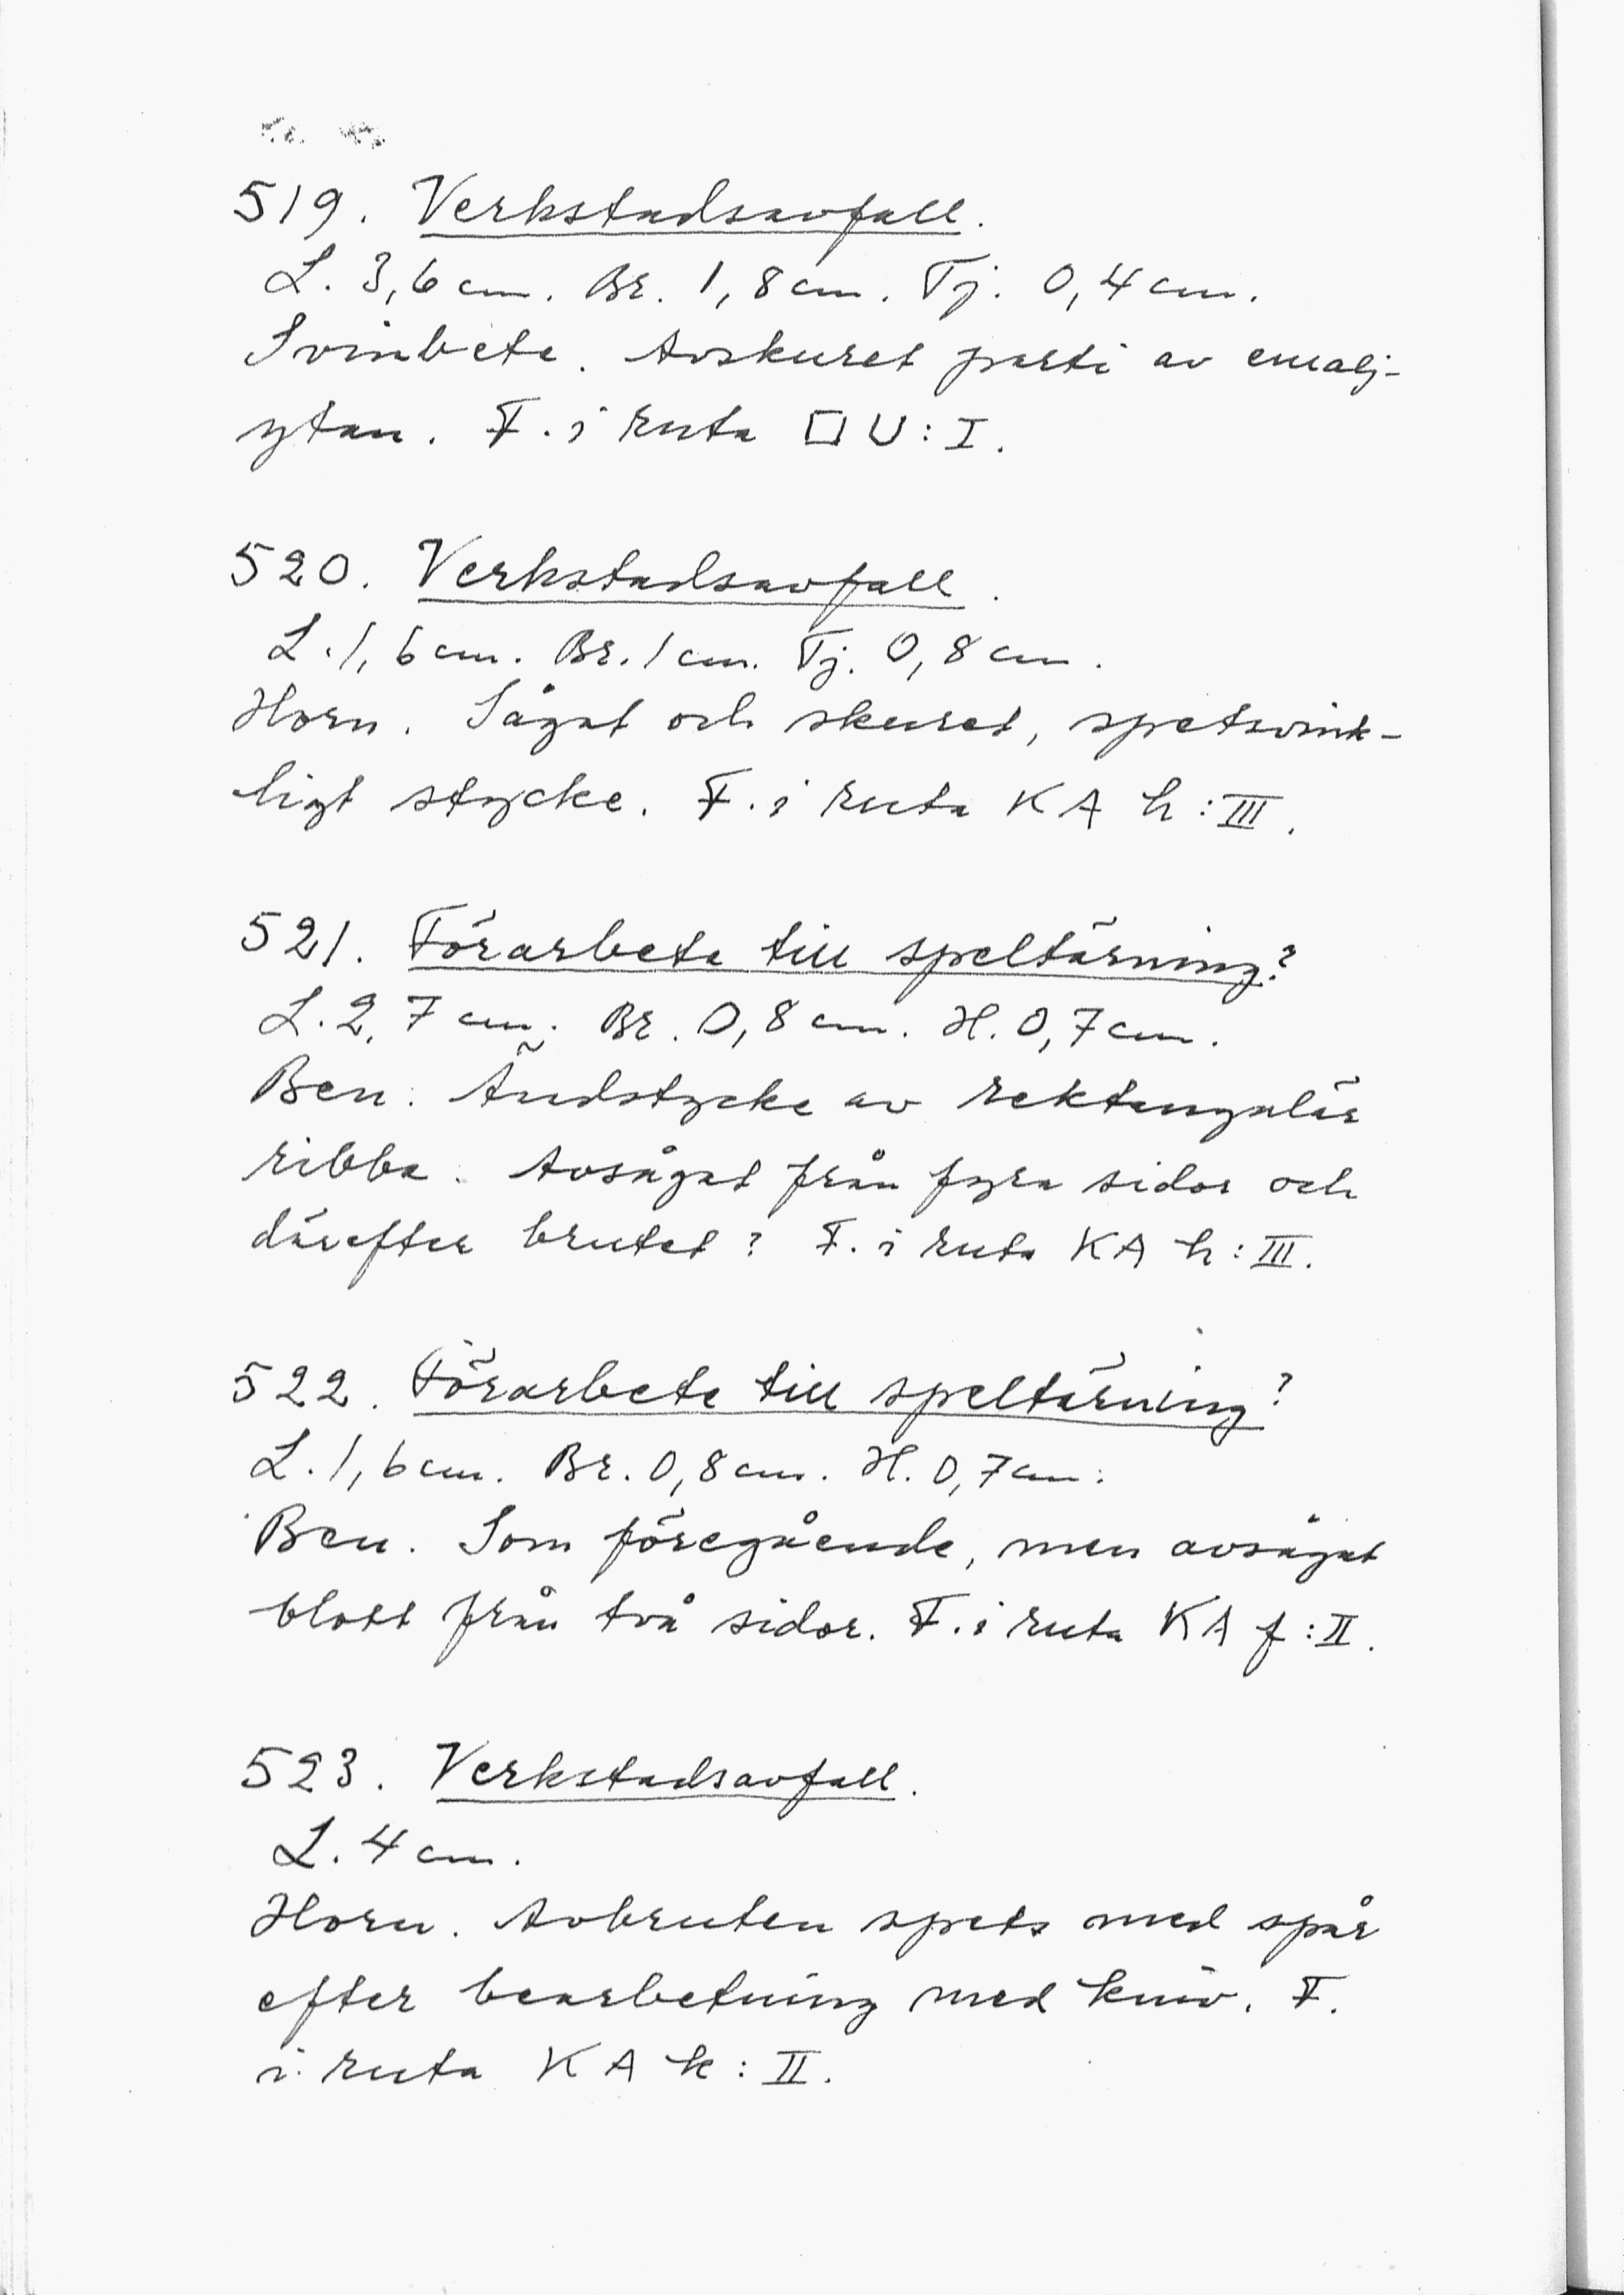 519. Verkstadsavfall.
L. 3,6 cm. Br. 1,8 cm. Tj. 0,4 cm.
Svinbete. Avskuret parti av emalj-
ytan. F. i ruta □ U : I.
520. Verkstadsavfall.
L. 1,6 cm. Br. 1 cm. Tj. 0,8 cm.
Horn. Sågat och skuret, spetsvink-
ligt stycke. F. i ruta KA h : III.
521. Förarbete till speltärning?
L. 2,7 cm. Br. 0,8 cm. H. 0,7 cm.
Ben. Ändstycke av rektangulär
ribba. Avsågat från fyra sidor och
därefter brutet? F. i ruta KA h : III.
522. Förarbete till speltärning?
L. 1,6 cm. Br. 0,8 cm. H. 0,7 cm.
Ben. Som föregående, men avsågat
blott från två sidor. F. i ruta KA f : II.
523. Verkstadsavfall.
L. 4 cm.
Horn. Avbruten spets med spår
efter bearbetning med kniv. F.
i ruta KA k : II.